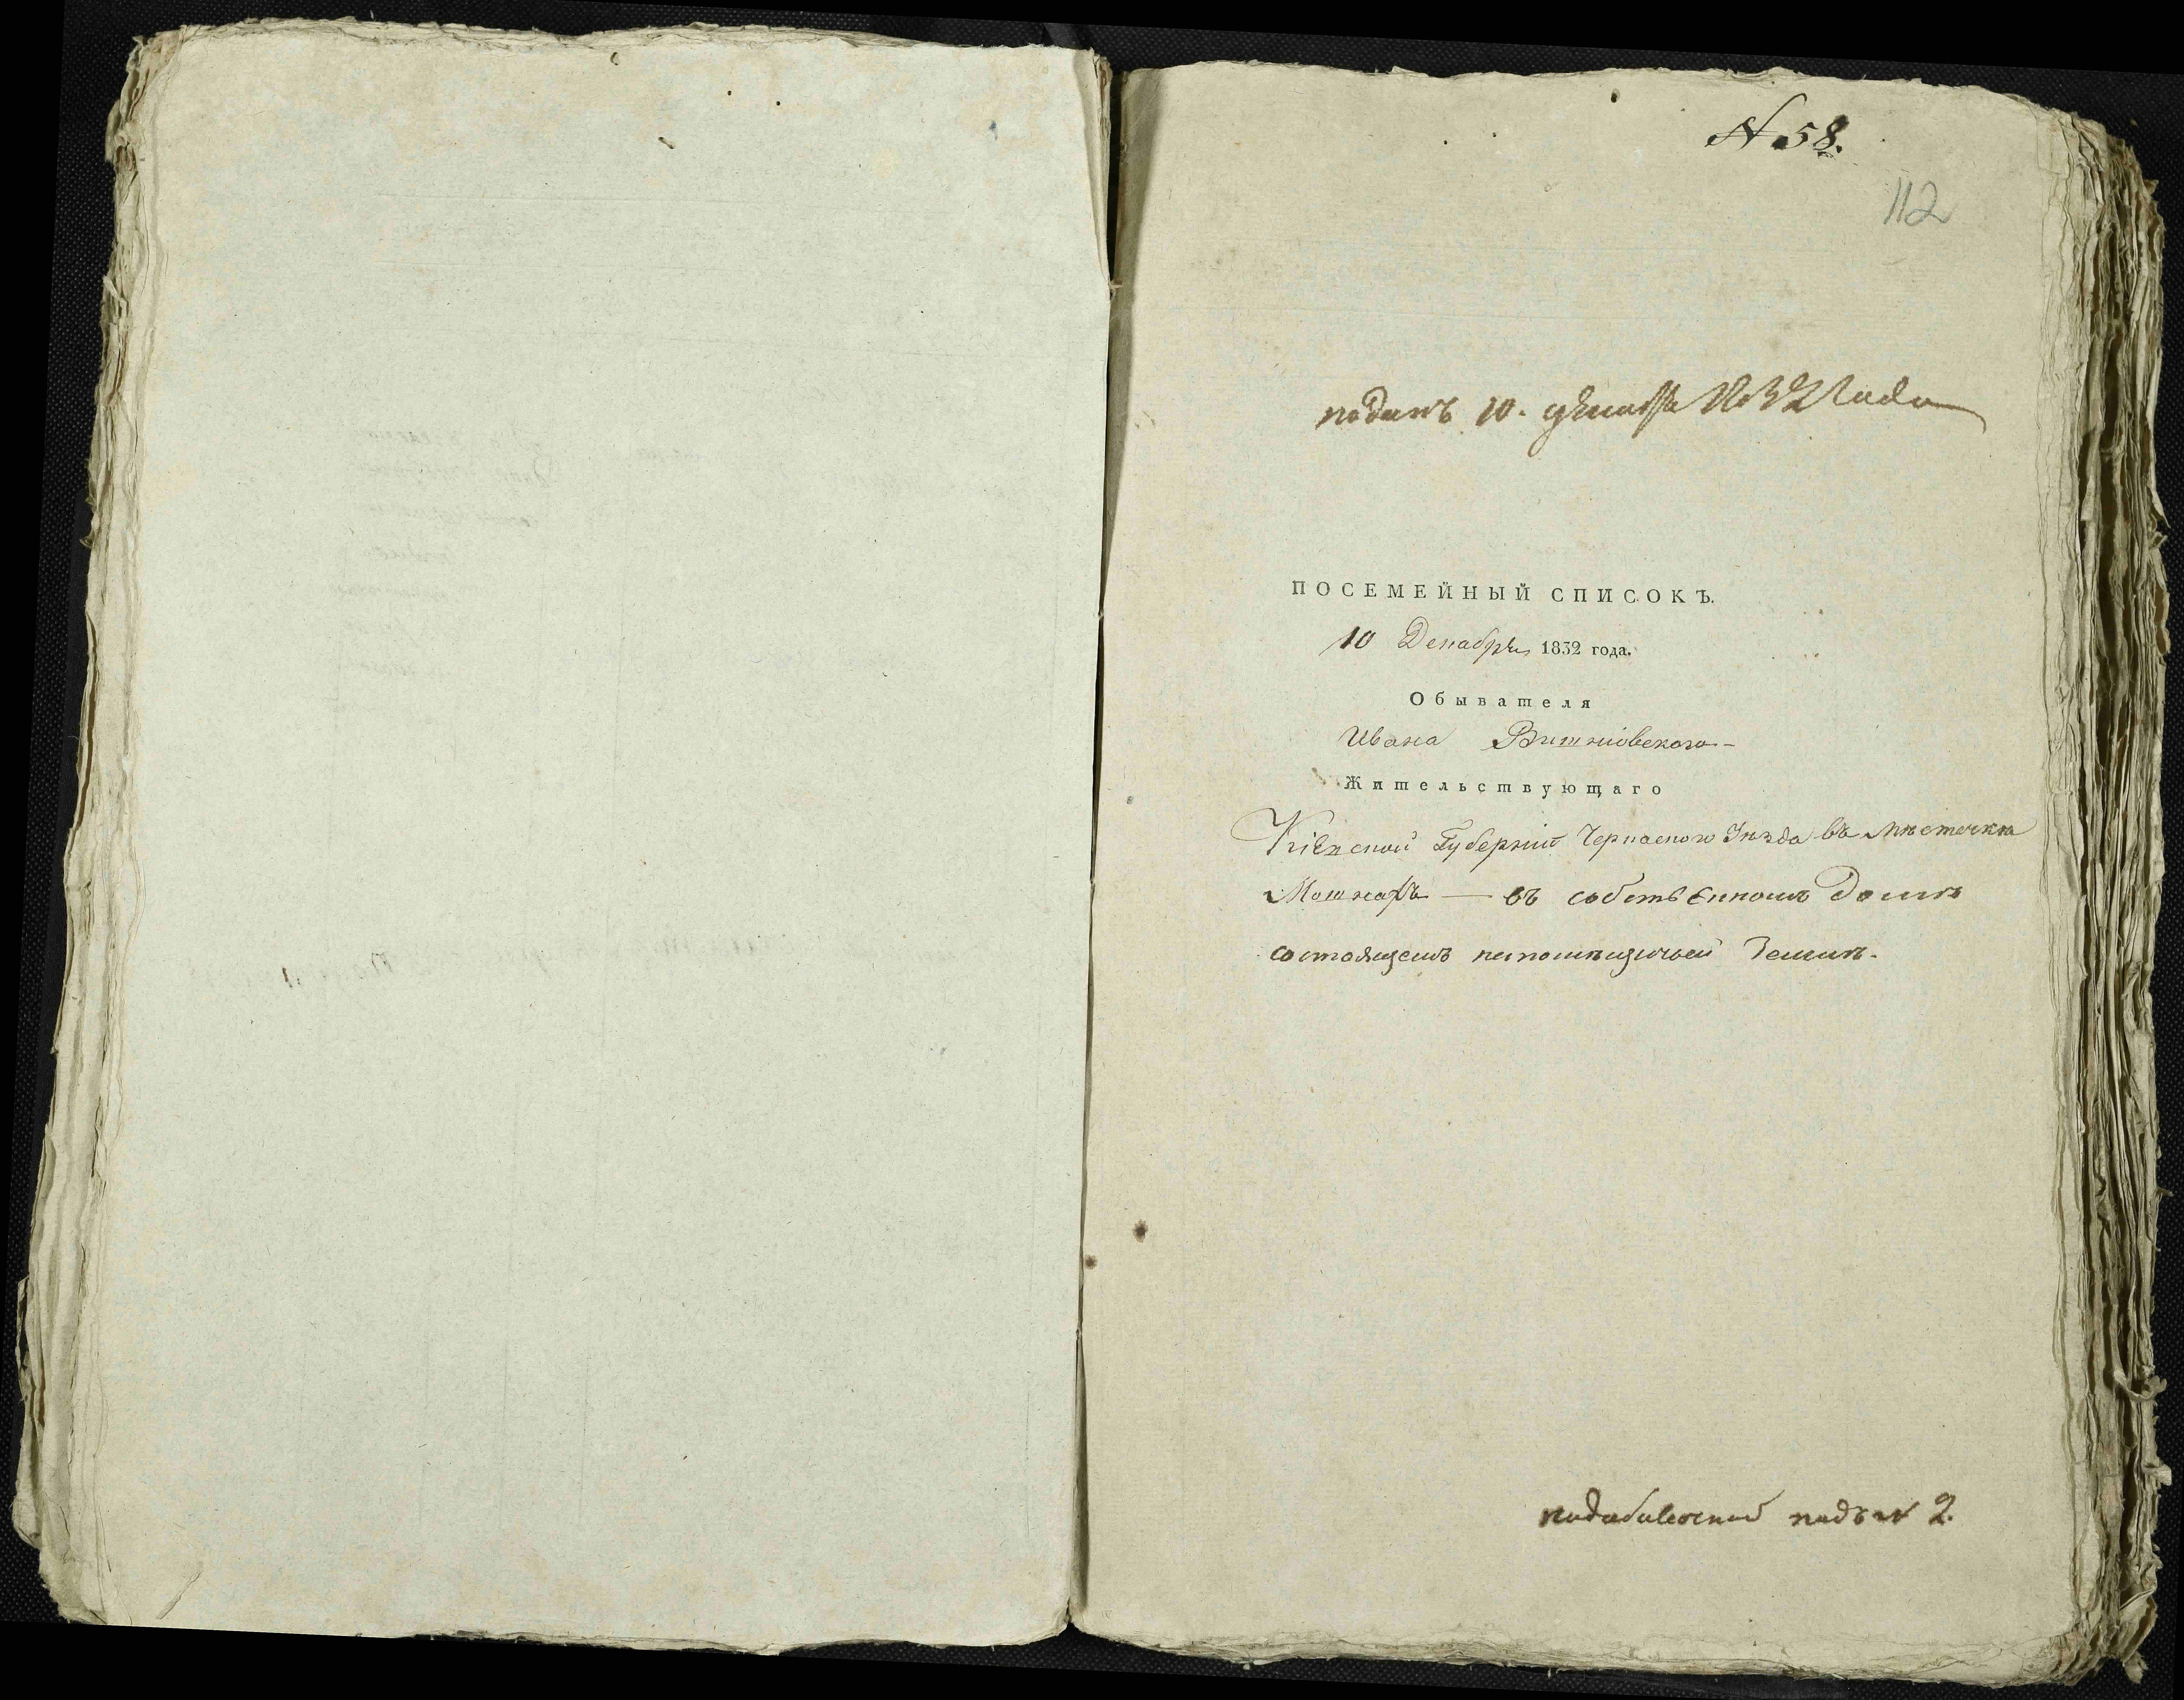 N 58.
112
поданъ 10. декабря 1832 года
ПОСЕМЕЙНЫЙ СПИСОКЪ.
10 Декабря 1832 года.
Обывателя
Ивана Вишніовского-
Жительствующаго
Кіевской Губерніи Черкаского Уѣзда въ мѣстечкѣ
Мошнахъ — въ собственномъ домѣ
состоящемъ напомѣщичьей Земли.
подъ N 2.